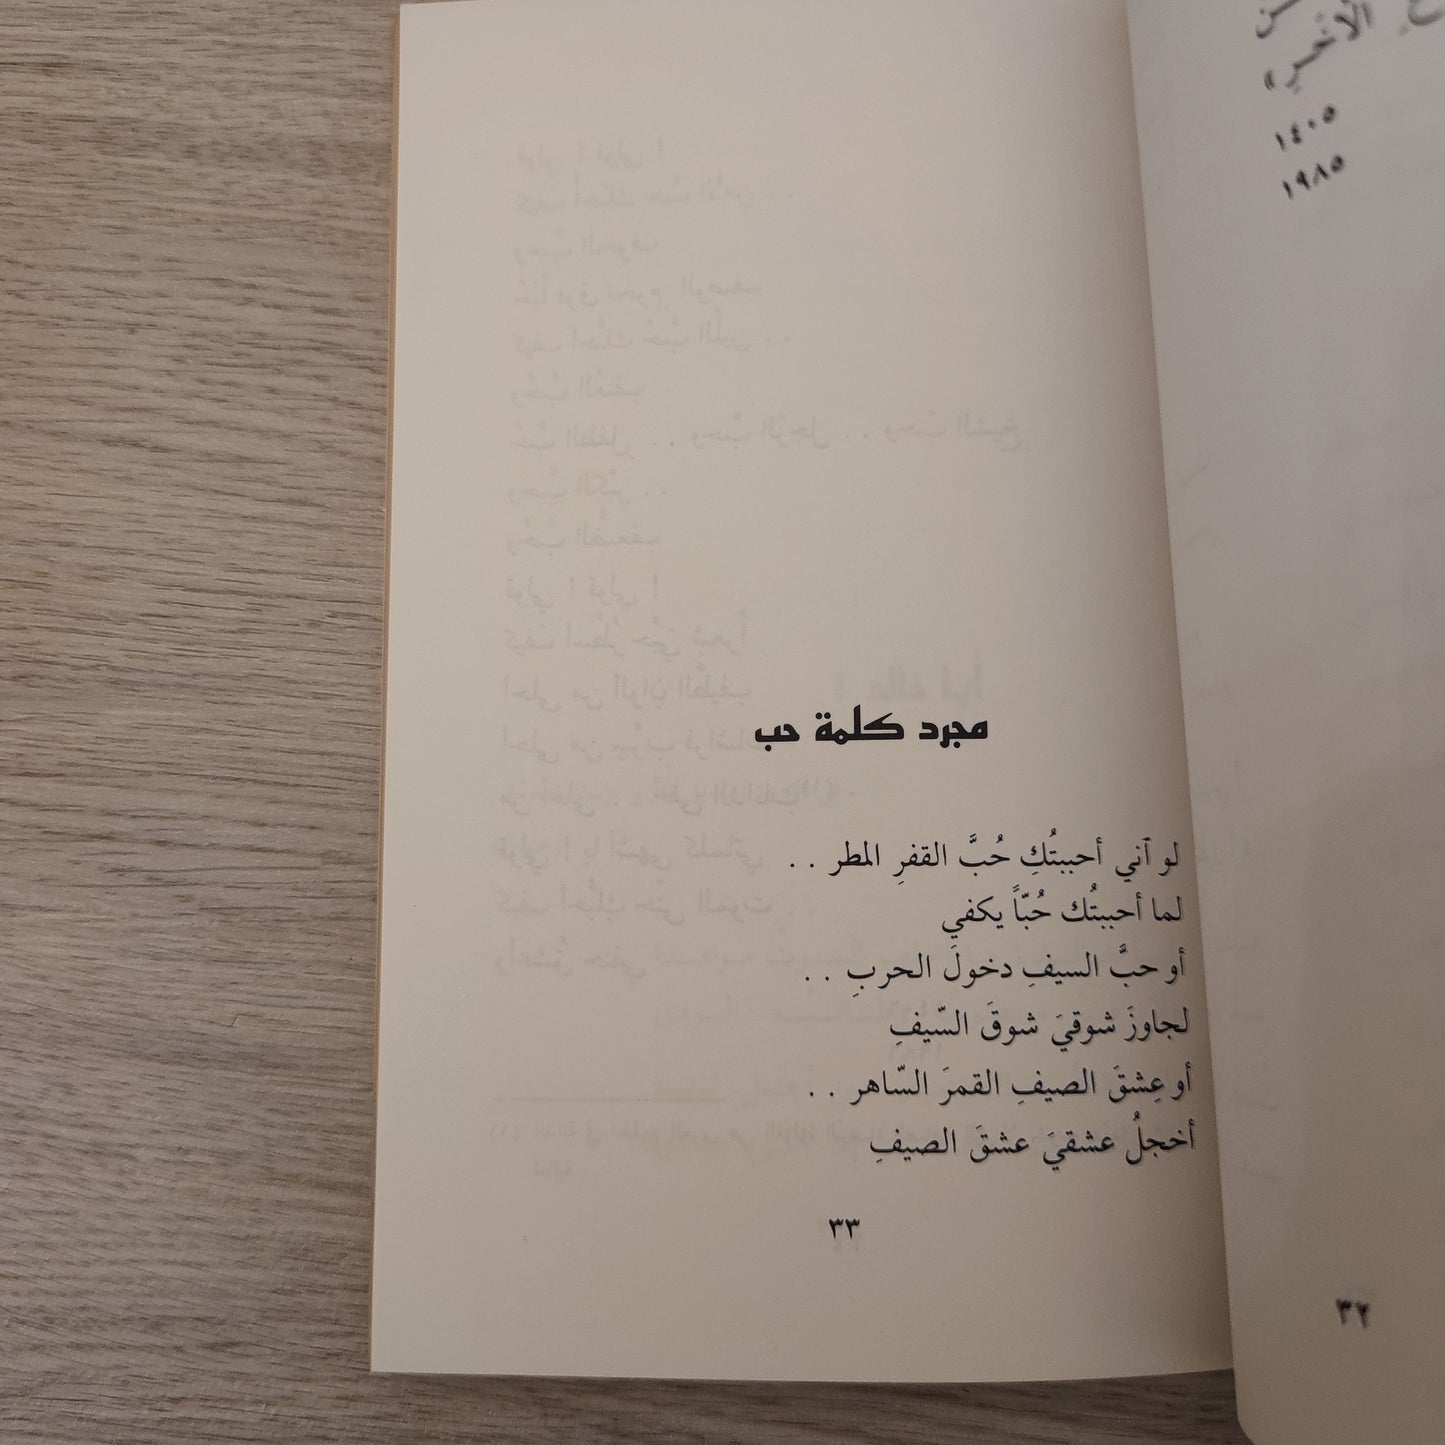 الآخرِ »
١٤٠٥
١٩٨٥
٣٢
مجرد كلمة حب
لو آني أحببتُكِ حُبَّ القفرِ المطر . .
لما أحببتُك حُبّاً يكفي
أو حبَّ السيفِ دخولَ الحربِ . .
لجاوزَ شوقيَ شوقَ السّيفِ
أو عِشقَ الصيفِ القمرَ السّاهر . .
أخجلُ عشقيَ عشقَ الصيفِ
٣٣